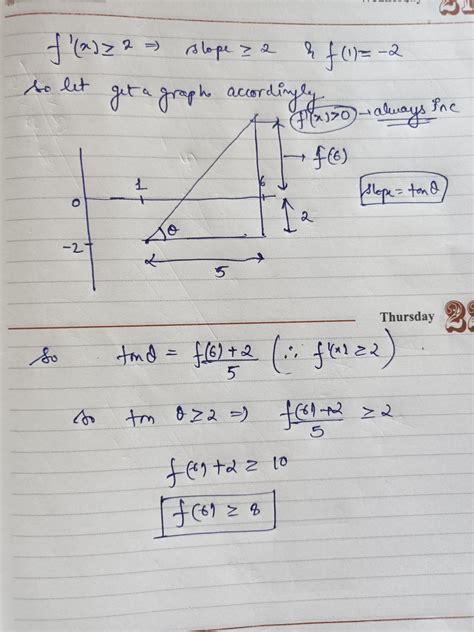 f'(x) ≥ 2 ⇒ slope ≥ 2 & f(1) = -2
so let get a graph accordingly
f'(x)>0 → always Inc
→ f(6)
1
6
slope = tanθ
0
2
θ
-2
5
Thursday
so tanθ = f(6)+2/5 (∵ f'(x) ≥ 2)
so tan θ ≥ 2 ⇒ f(6)+2/5 ≥ 2
f(6) + 2 ≥ 10
f(6) ≥ 8